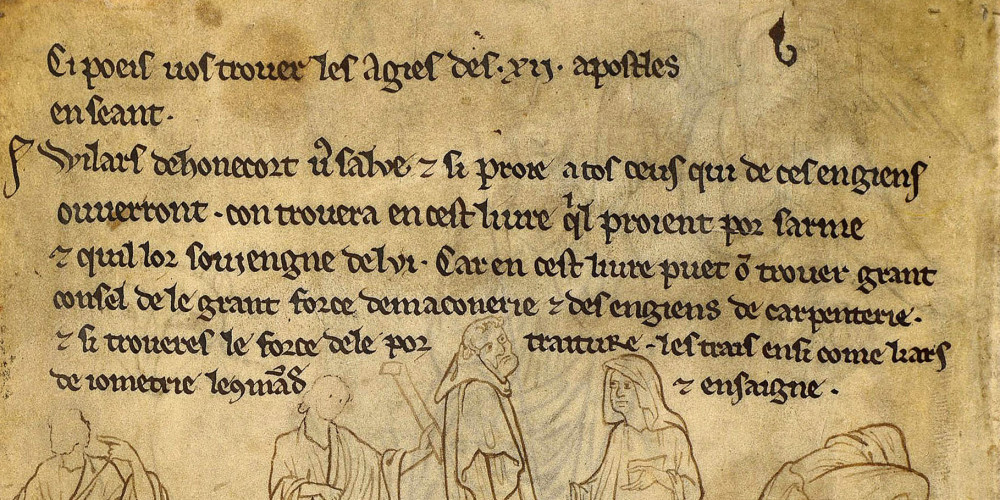 Ci poeis uos trouer les agies des .xij. apostles
en seant.
Wilars dehonecort ṽ salue ⁊ si proie a tos ceus qui de ces engiens
ouuerront . con trouera en cest liure q̾l proient por sarme
⁊ quil lor soujengne de lvi . Car en cest liure puet õ trouer grant
consel de le grant force de maconerie ⁊ des engiens de carpenterie .
⁊ si troueres le force de le por traiture . les trais ensi come li ars
de iometrie le 9mãd ⁊ ensaigne .